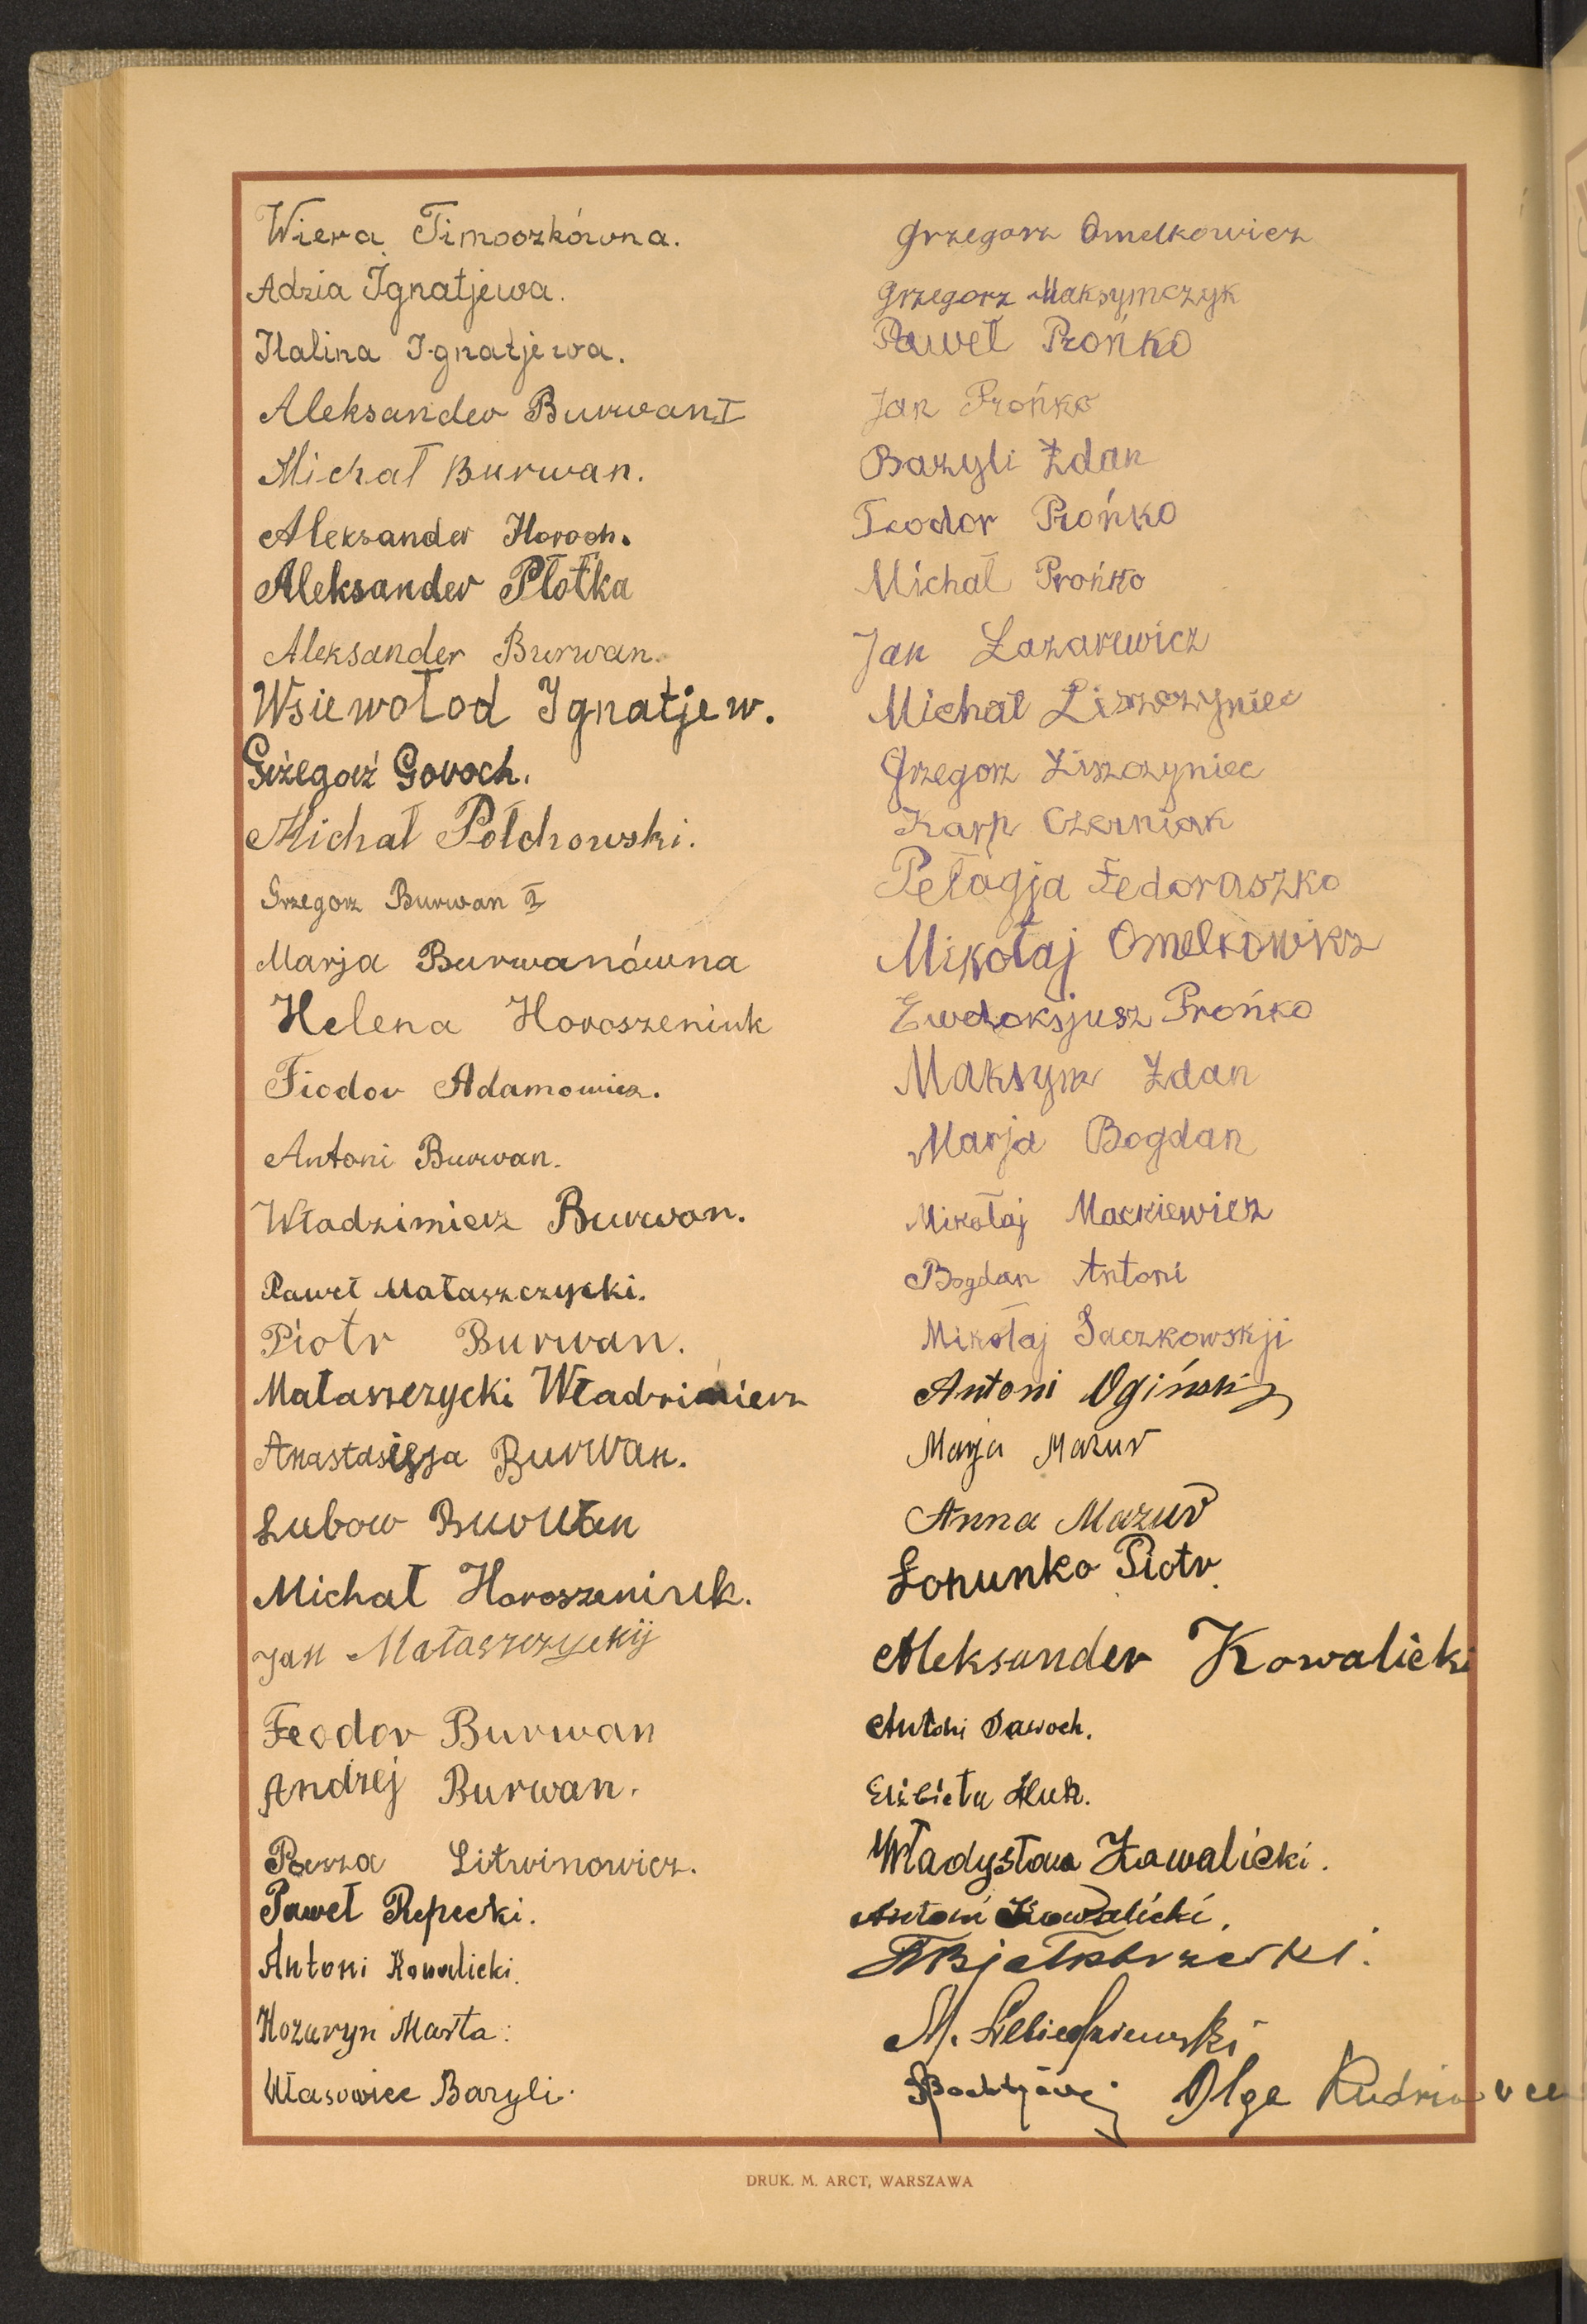 Wiera Timoszkówna.
Adzia Ignatjewa.
Halina Ignatjewa.
Aleksander Burwan I
Michał Burwan.
Aleksander Horoch.
Aleksander Płotka
Aleksander Burwan.
Wsiewołod Ignatjew.
Gżegoż Goroch.
Michał Połchowski.
Grzegorz Burwan I
Marja Burwanówna
Helena Horoszeniuk
Fiodor Adamowicz.
Antoni Burwan.
Władzimierz Burwan.
Paweł Małaszczycki.
Piotr Burwan.
Małaszczycki Władzimierz
Burwan.
Lubow Burwan
Michał Horoszeniuk.
Jan Małaszczyckij
Feodor Burwan
Andżej Burwan.
Litwinowicz.
Paweł Repecki.
Antoni Kowalicki.
Kozuryn Marta.
Własowiec Bazyli.
Grzegorz Omelkowicz
Grzegorz Maksymczyk
Paweł Prońko
Jan Prońko
Bazyli Żdan
Teodor Prońko
Michał Prońko
Jan Łazarewicz
Michał Liszczyniec
Grzegorz Liszczyniec
Karp Czerniak
Pełagja Fedoraszko
Mikołaj Omelkowicz
Ewdoksjusz Prońko
Maksym Żdan
Marja Bogdan
Mikołaj Mackiewicz
Bogdan Antoni
Mikołaj Saczkowskji
Antoni Ogiński
Marja Mazur
Anna Mazur
Łopunko Piotr
Aleksander Kowalicki
Antoni Dawoch.
Elżbieta Huk.
Władysław Kowalicki.
Antoni Kowalicki.
M.
Olga
DRUK. M. ARCT, WARSZAWA